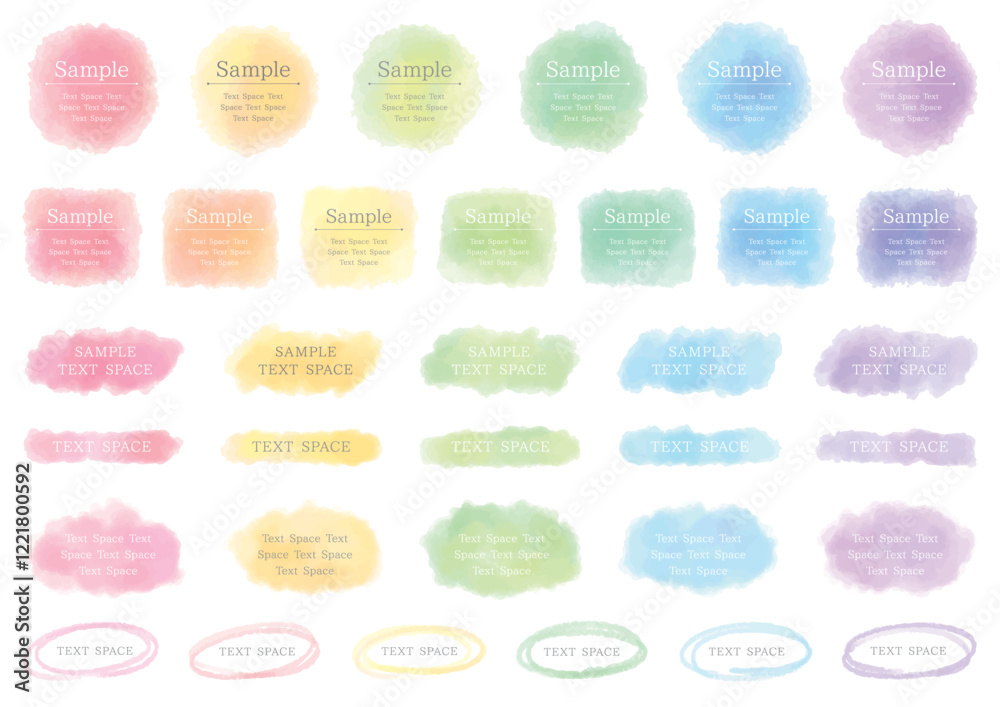 Sample
Text Space Text
Space Text Space
Text Space
Sample
Text Space Text
Space Text Space
Text Space
Sample
Text Space Text
Space Text Space
Text Space
Sample
Text Space Text
Space Text Space
Text Space
Sample
Text Space Text
Space Text Space
Text Space
Sample
Text Space Text
Space Text Space
Text Space
Sample
Text Space Text
Space Text Space
Text Space
Sample
Text Space Text
Space Text Space
Text Space
Sample
Text Space Text
Space Text Space
Text Space
Sample
Text Space Text
Space Text Space
Text Space
Sample
Text Space Text
Space Text Space
Text Space
Sample
Text Space Text
Space Text Space
Text Space
Sample
Text Space Text
Space Text Space
Text Space
SAMPLE
TEXT SPACE
SAMPLE
TEXT SPACE
SAMPLE
TEXT SPACE
SAMPLE
TEXT SPACE
SAMPLE
TEXT SPACE
TEXT SPACE
TEXT SPACE
TEXT SPACE
TEXT SPACE
TEXT SPACE
Text Space Text
Space Text Space
Text Space
Text Space Text
Space Text Space
Text Space
Text Space Text
Space Text Space
Text Space
Text Space Text
Space Text Space
Text Space
Text Space Text
Space Text Space
Text Space
TEXT SPACE
TEXT SPACE
TEXT SPACE
TEXT SPACE
TEXT SPACE
TEXT SPACE
Adobe Stock | #1221800592